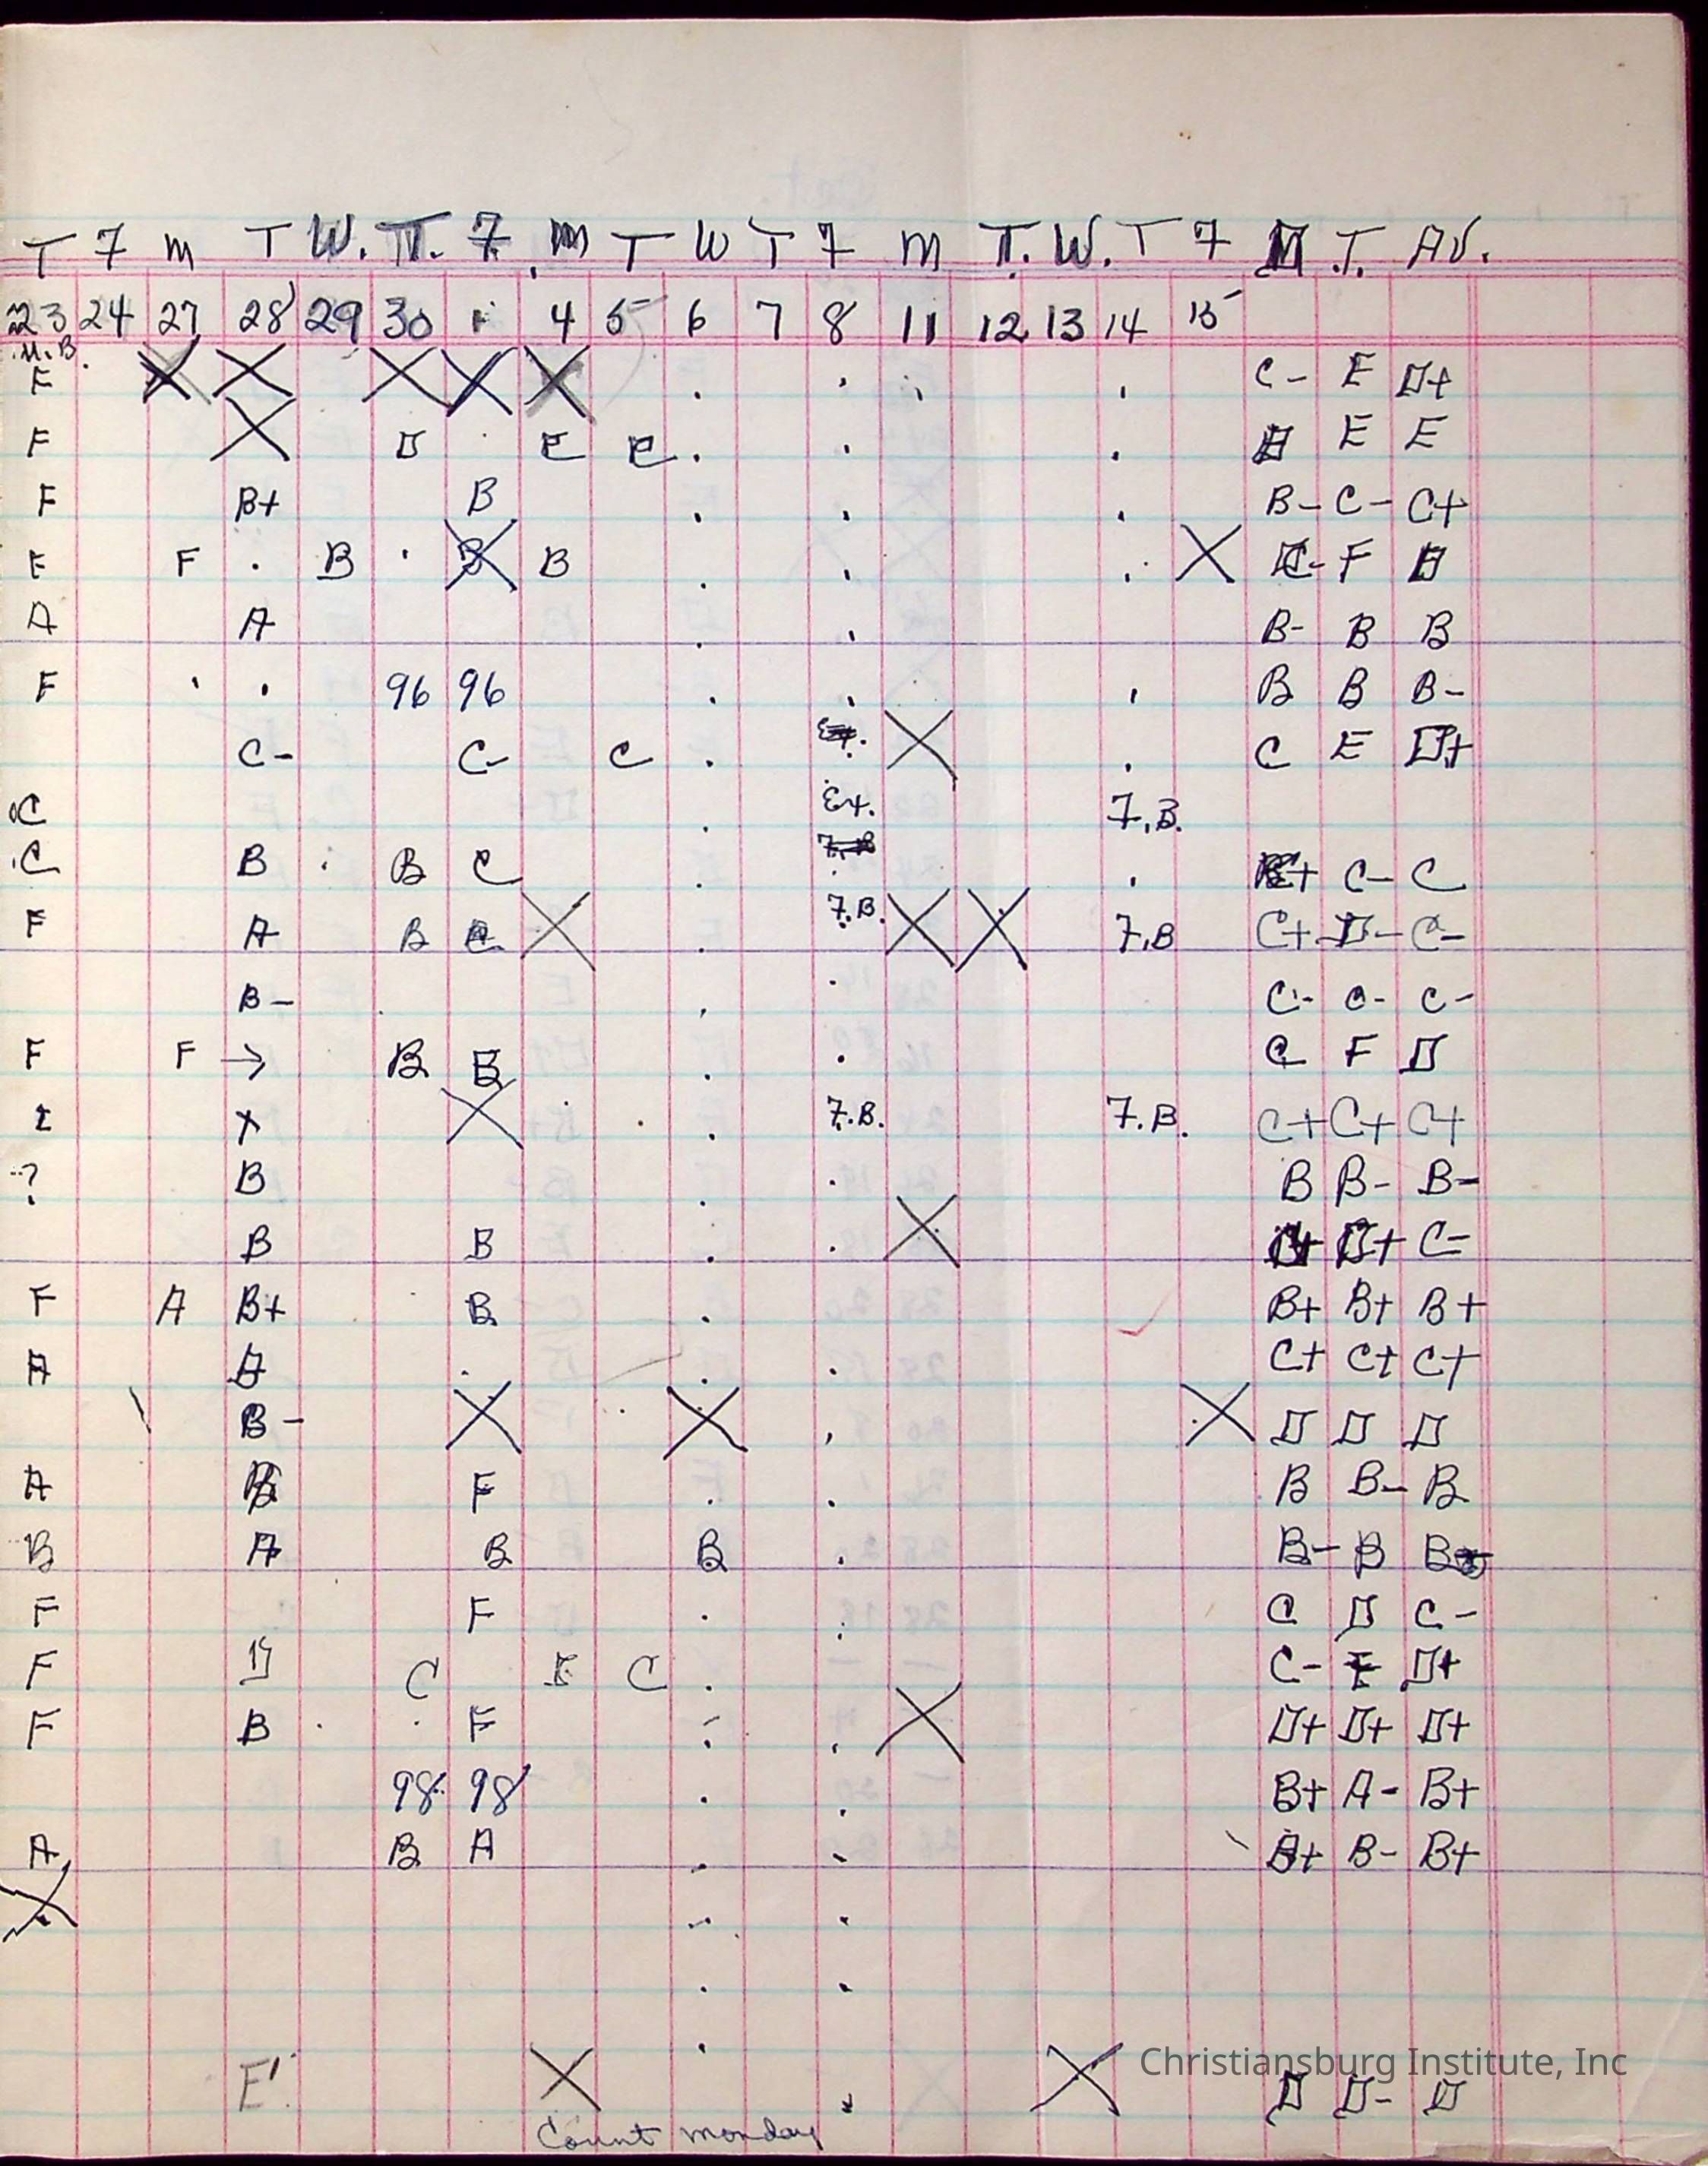 T F M T W. T. F. M T W T F M T. W. T F D T. Av.
23 24 27 28 29 30 1 4 5 6 7 8 11 12 13 14 15
N.B.
F X X X X X C- E D+
F X D . E E . . . E E
F B+ B . . . B- C- C+
E F . B . B . . . X C- F D
A A . . B- B B
F . . 96 96 . . . B B B-
C- C- C . . X . C E D+
C . Ex. F.B.
C B . B C . F.B . C+ C- C
F A B C X . F.B. X X F.B C+ D- C-
B- . . . C- C- C-
F F → B B . . C F D
X X . . . F.B. F.B. C+ C+ C+
? B . . B B- B-
B B . . X C+ D+ C-
F A B+ B . B+ B+ B+
A A . . . C+ C+ C+
B- X . X . X D D D
A B F . . B B- B
B A B B . B- B B
F F . . C D C-
F D C E C . C- E D+
F B . . F . . X D+ D+ D+
98 98 . . B+ A- B+
A B A . . B+ B- B+
X . .
. .
.
Christiansburg Institute, Inc
E X . X D D- D
Count Monday